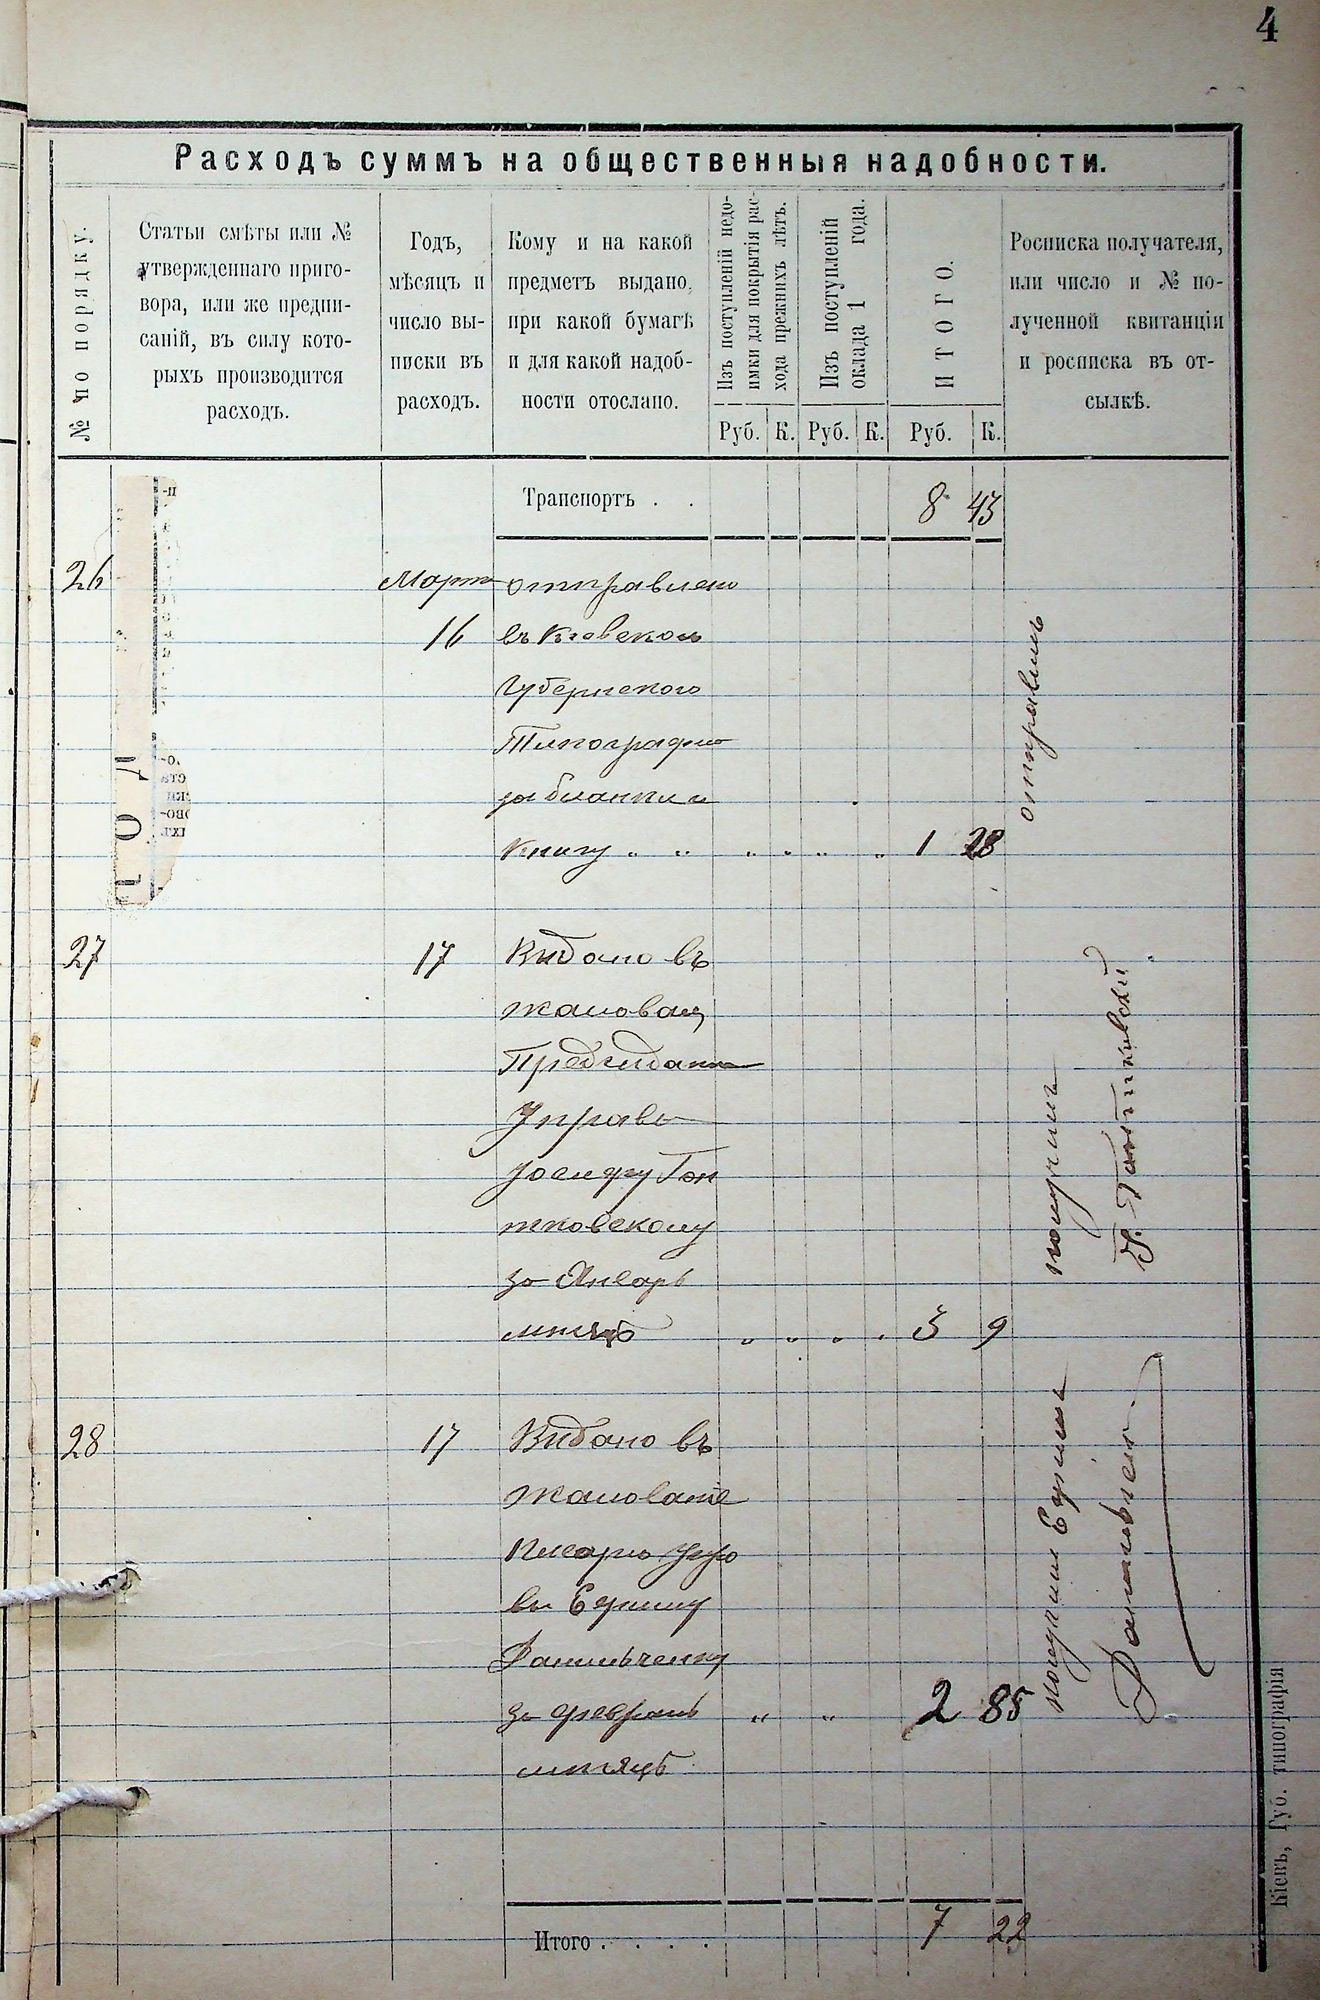 4
Расходъ суммъ на общественныя надобности.
№ по порядку.
Статьи смѣты или №
утвержденнаго приго-
вора, или же предпи-
саній, въ силу кото-
рыхъ производится
расходъ.
Годъ,
мѣсяцъ и
число вы-
писки въ
расходъ.
Кому и на какой
предметъ выдано,
при какой бумагѣ
и для какой надоб-
ности отослано.
Изъ поступленій недо-
имки для покрытія рас-
хода прежнихъ лѣтъ.
Изъ поступленій
оклада 1 года.
ИТОГО.
Росписка получателя,
или число и № по-
лученной квитанціи
и росписка въ от-
сылкѣ.
Руб. К. Руб. К. Руб. К.
Транспортъ . . 8 43
26 Марта отправлено
16 въ Кіевском
Губернского
Типографію
за бланки и
книгу " " " " " " 1 28
отправилъ
27 17 Видано въ
жалован
Председат
Управы
Іосифу Гон
тковскому
за Январь
месяцъ " " " " 3 9
получилъ
28 17 Видано въ
жалованіе
Писарю Упра
вы Ефиму
Данильченку
за февраль " " 2 85
месяцъ
получилъ Ефимъ
Данильченко
Итого . . . . 7 22
Кіевъ, Губ. типографія